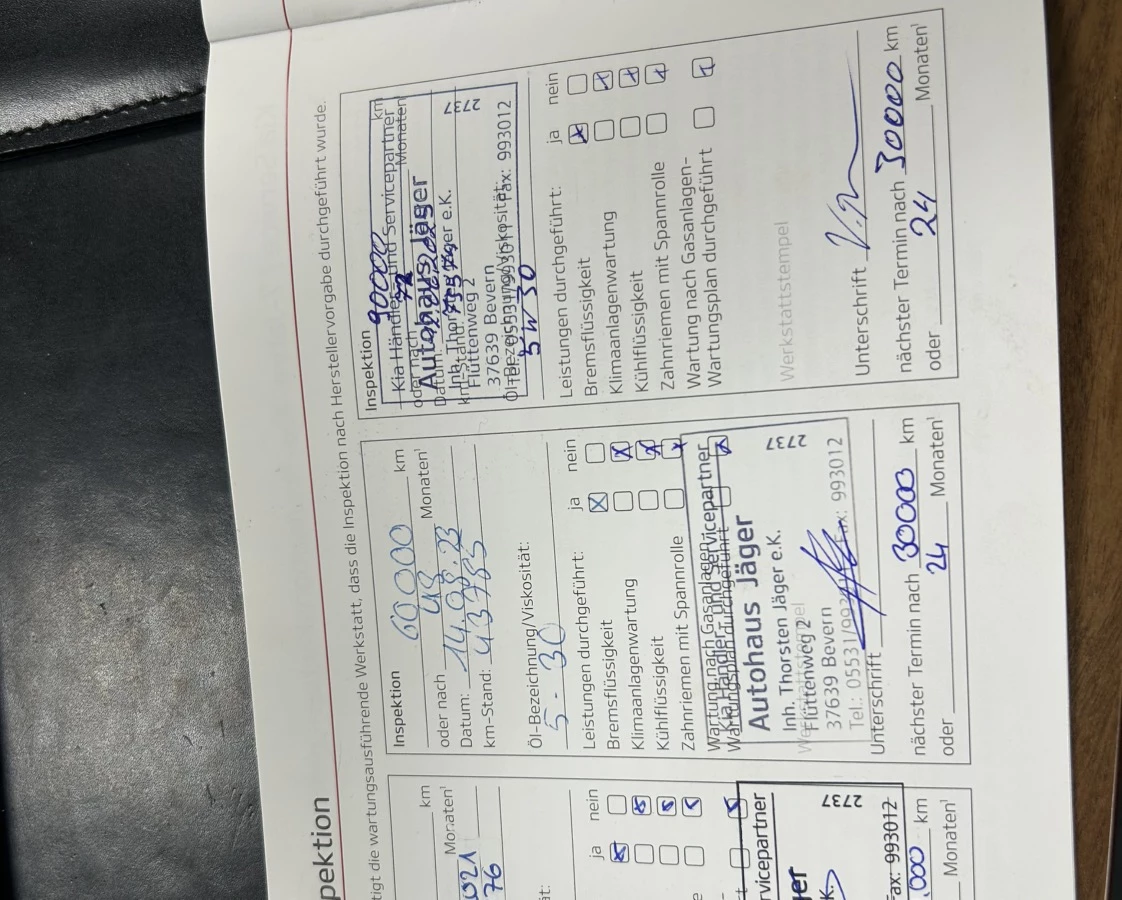 pektion
tigt die wartungsausführende Werkstatt, dass die Inspektion nach Herstellervorgabe durchgeführt wurde.
km
Monaten¹
021
76
ät:
ja nein
rvicepartner
ger
K.
2737
Fax: 993012
.000 km
Monaten¹
Inspektion 60000 km
oder nach 48 Monaten¹
Datum: 14.08.23
km-Stand: 43785
Öl-Bezeichnung/Viskosität:
5 - 30
Leistungen durchgeführt: ja nein
Bremsflüssigkeit
Klimaanlagenwartung
Kühlflüssigkeit
Zahnriemen mit Spannrolle
Wartung nach Gasanlagen-
Wartungsplan durchgeführt
Kia Händler- und Servicepartner
Autohaus Jäger
Inh. Thorsten Jäger e.K.
Flüttenweg 2
37639 Bevern 2737
Tel.: 05531/993011 Fax: 993012
Werkstattstempel
Unterschrift
nächster Termin nach 30000 km
oder 24 Monaten¹
Inspektion 90000 km
oder nach 72 Monaten¹
Datum:
km-Stand:
Öl-Bezeichnung/Viskosität:
5 W 30
Kia Händler- und Servicepartner
Autohaus Jäger
Inh. Thorsten Jäger e.K.
Flüttenweg 2
37639 Bevern 2737
Fax: 993012
Leistungen durchgeführt: ja nein
Bremsflüssigkeit
Klimaanlagenwartung
Kühlflüssigkeit
Zahnriemen mit Spannrolle
Wartung nach Gasanlagen-
Wartungsplan durchgeführt
Werkstattstempel
Unterschrift
nächster Termin nach 30000 km
oder 24 Monaten¹